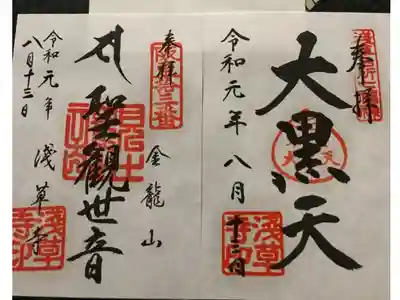 奉拝
大黒天
令和元年八月十三日
浅草寺印
奉拝
坂東十三番
金龍山
聖観世音
浅草寺
令和元年
八月十三日
浅草寺印